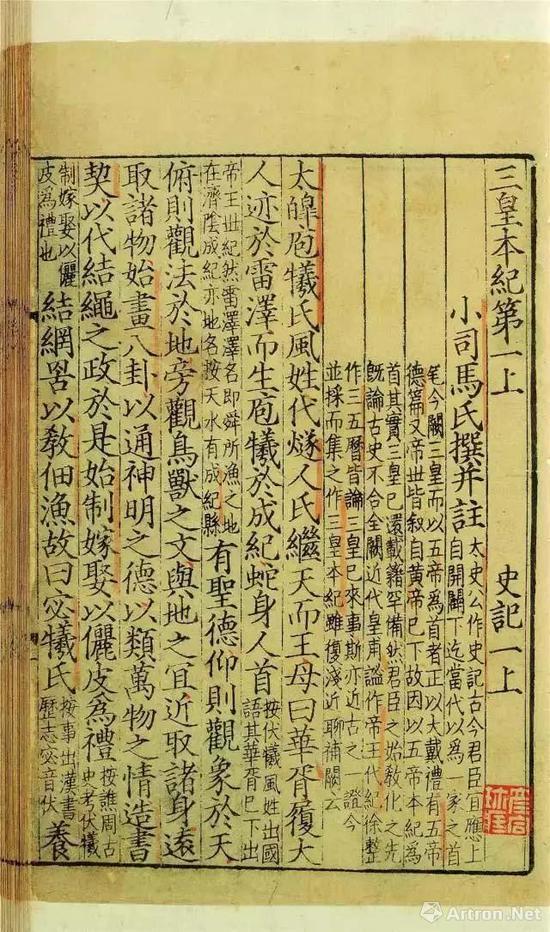 三皇本紀第一上 史記一上
小司馬氏撰并註 太史公作史記古今君臣宜應上
自開闢下迄當代以爲一家之首
笔今闕三皇而以五帝爲首者正以大戴禮有五帝
德篇又帝世皆敘自黃帝已下故因以五帝本紀爲
首其實三皇已還載籍罕備然君臣之始敎化之先
旣論古史不合全闕近代皇甫謐作帝王代紀徐整
作三五曆皆論三皇已來事斯亦近古之一證今
並採而集之作三皇本紀雖復淺近聊補闕云
太皥庖犧氏風姓代燧人氏繼天而王母曰華胥履大
人迹於雷澤而生庖犧於成紀蛇身人首 按伏犧風姓出國
語其華胥已下出
帝王世紀然雷澤澤名即舜所漁之地
在濟陰成紀亦地名按天水有成紀縣 有聖德仰則觀象於天
俯則觀法於地旁觀鳥獸之文與地之宜近取諸身遠
取諸物始畫八卦以通神明之德以類萬物之情造書
契以代結繩之政於是始制嫁娶以儷皮爲禮 按譙周古
史考伏犧
制嫁娶以儷
皮爲禮也 結網罟以敎佃漁故曰宓犧氏 按事出漢書
歷志宓音伏 養
Artron.Net